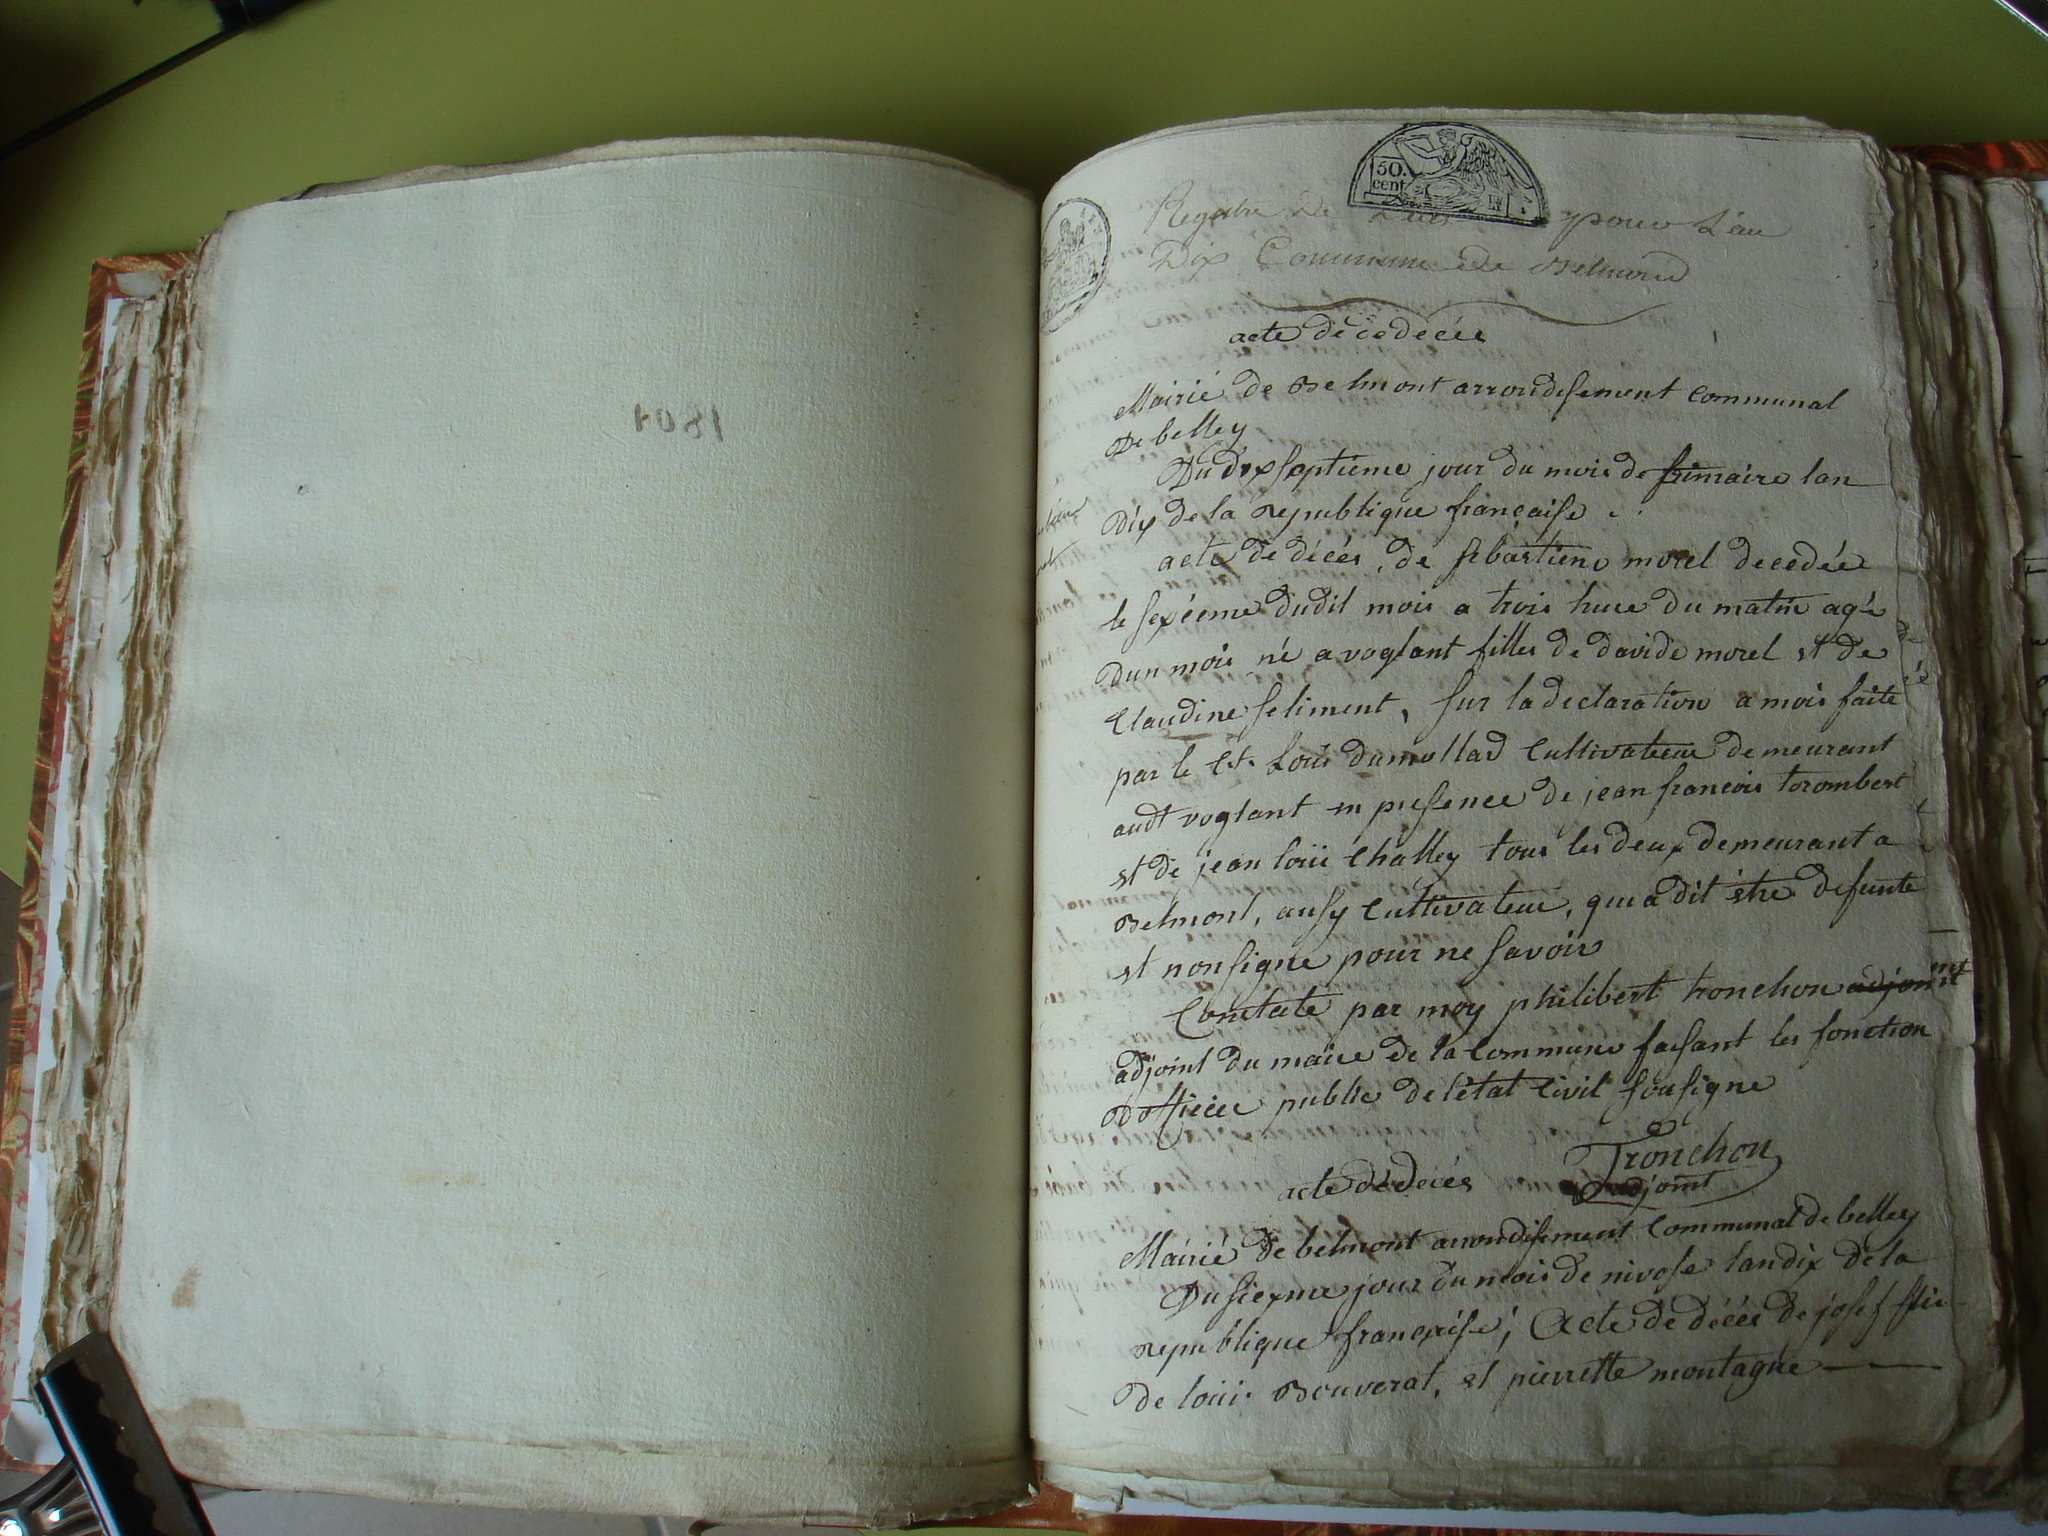 1801
50.
cent
Registre de pour L'an
Dix Commune de Belmont
acte de decés
Mairié de Belmont arrondisement communal
De belley
Du dixseptieme jour du mois de frimaire lan
dix de la republique française
acte de décés, de sebastien morel decedée
le sexéeme dudit mois a trois hure du matin agé
dun mois né a voglant filles de davide morel et de
Claudine feliment, sur la declaration a mois faite
par le Ct. Louis dumollard Cultivateur demeurant
audt voglant en presence de jean francois torombert
et de jean loüis Challey tous les deux demeurant a
Belmont, ausy Cultivateur, qui a dit être defunte
et non signe pour ne savoir
Constate par moy philibert tronchon adjoint
adjoint du maire de la commune faisant les fonction
Dofficier public de létat Civil sousigne
Tronchon
adjoint
acte de decés
Mairié de belmont arrondisement communal de belley
Du siexme jour du mois de nivose landix de la
republique française; Acte de décés de josef
de loüis Bouverat, et pierrette montagne